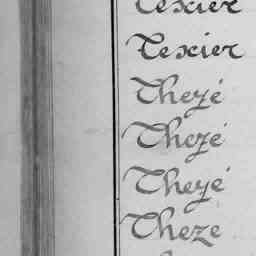 Texier
Texier
Thezé
Thezé
Theyé
Theze